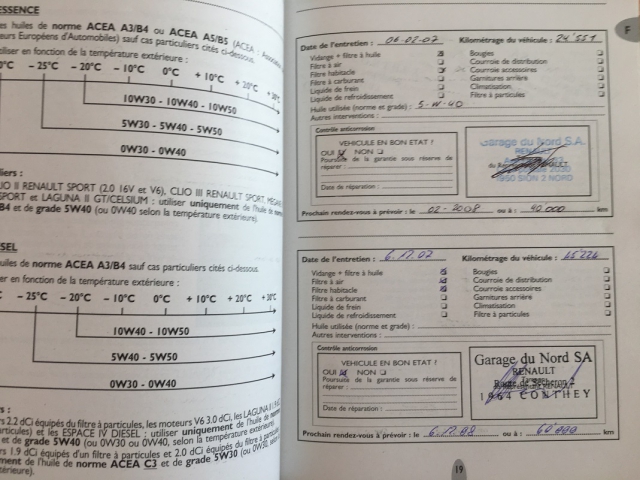 ESSENCE
es huiles de norme ACEA A3/B4 ou ACEA A5/B5 (ACEA :
eurs Européens d'Automobiles) sauf cas particuliers cités ci-dessous.
tiliser en fonction de la température extérieure :
0°C - 25°C - 20°C - 10°C 0°C + 10°C + 20°C
10W30 - 10W40 - 10W50
5W30 - 5W40 - 5W50
0W30 - 0W40
liers :
LIO II RENAULT SPORT (2.0 16V et V6), CLIO III RENAULT SPORT,
SPORT et LAGUNA II GT/CELSIUM : utiliser uniquement de l'huile de
B4 et de grade 5W40 (ou 0W40 selon la température extérieure).
SEL
uiles de norme ACEA A3/B4 sauf cas particuliers cités ci-dessous.
er en fonction de la température extérieure :
°C - 25°C - 20°C - 10°C 0°C + 10°C + 20°C + 30°C
10W40 - 10W50
5W40 - 5W50
0W30 - 0W40
s :
rs 2.2 dCi équipés du filtre à particules, les moteurs V6 3.0 dCi, les LAGUNA II
articules) et les ESPACE IV DIESEL : utiliser uniquement de l'huile de
et de grade 5W40 (ou 0W30 ou 0W40, selon la température extérieure).
rs 1.9 dCi équipés d'un filtre à particules et 2.0 dCi équipés du filtre à
ment de l'huile de norme ACEA C3 et de grade 5W30 (ou 0W30, selon
térieure).
F
Date de l'entretien : 06.02.07 Kilométrage du véhicule : 24'551
Vidange + filtre à huile Bougies
Filtre à air Courroie de distribution
Filtre habitacle Courroie accessoires
Filtre à carburant Garnitures arrière
Liquide de frein Climatisation
Liquide de refroidissement Filtre à particules
Huile utilisée (norme et grade) : 5-W-40
Autres interventions :
Contrôle anticorrosion
VEHICULE EN BON ETAT ?
OUI NON
Poursuite de la garantie sous réserve de
réparer :
Date de réparation :
Garage du Nord S.A.
RENAULT
1950 SION 2 NORD
Prochain rendez-vous à prévoir : le 02-2008 ou à : 40.000 km
Date de l'entretien : 6.11.07 Kilométrage du véhicule : 45'226
Vidange + filtre à huile Bougies
Filtre à air Courroie de distribution
Filtre habitacle Courroie accessoires
Filtre à carburant Garnitures arrière
Liquide de frein Climatisation
Liquide de refroidissement Filtre à particules
Huile utilisée (norme et grade) :
Autres interventions :
Contrôle anticorrosion
VEHICULE EN BON ETAT ?
OUI NON
Poursuite de la garantie sous réserve de
réparer :
Date de réparation :
Garage du Nord SA
RENAULT
1964 CONTHEY
Prochain rendez-vous à prévoir : le 6.11.08 ou à : km
19